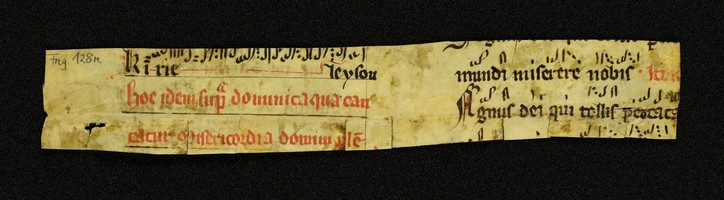 Frg 128r
Ki rie leyson
Hoc idem sup dominica qua can
tatur Misericordia domini ple
mundi miserere nobis
Agnus dei qui tollis peccata